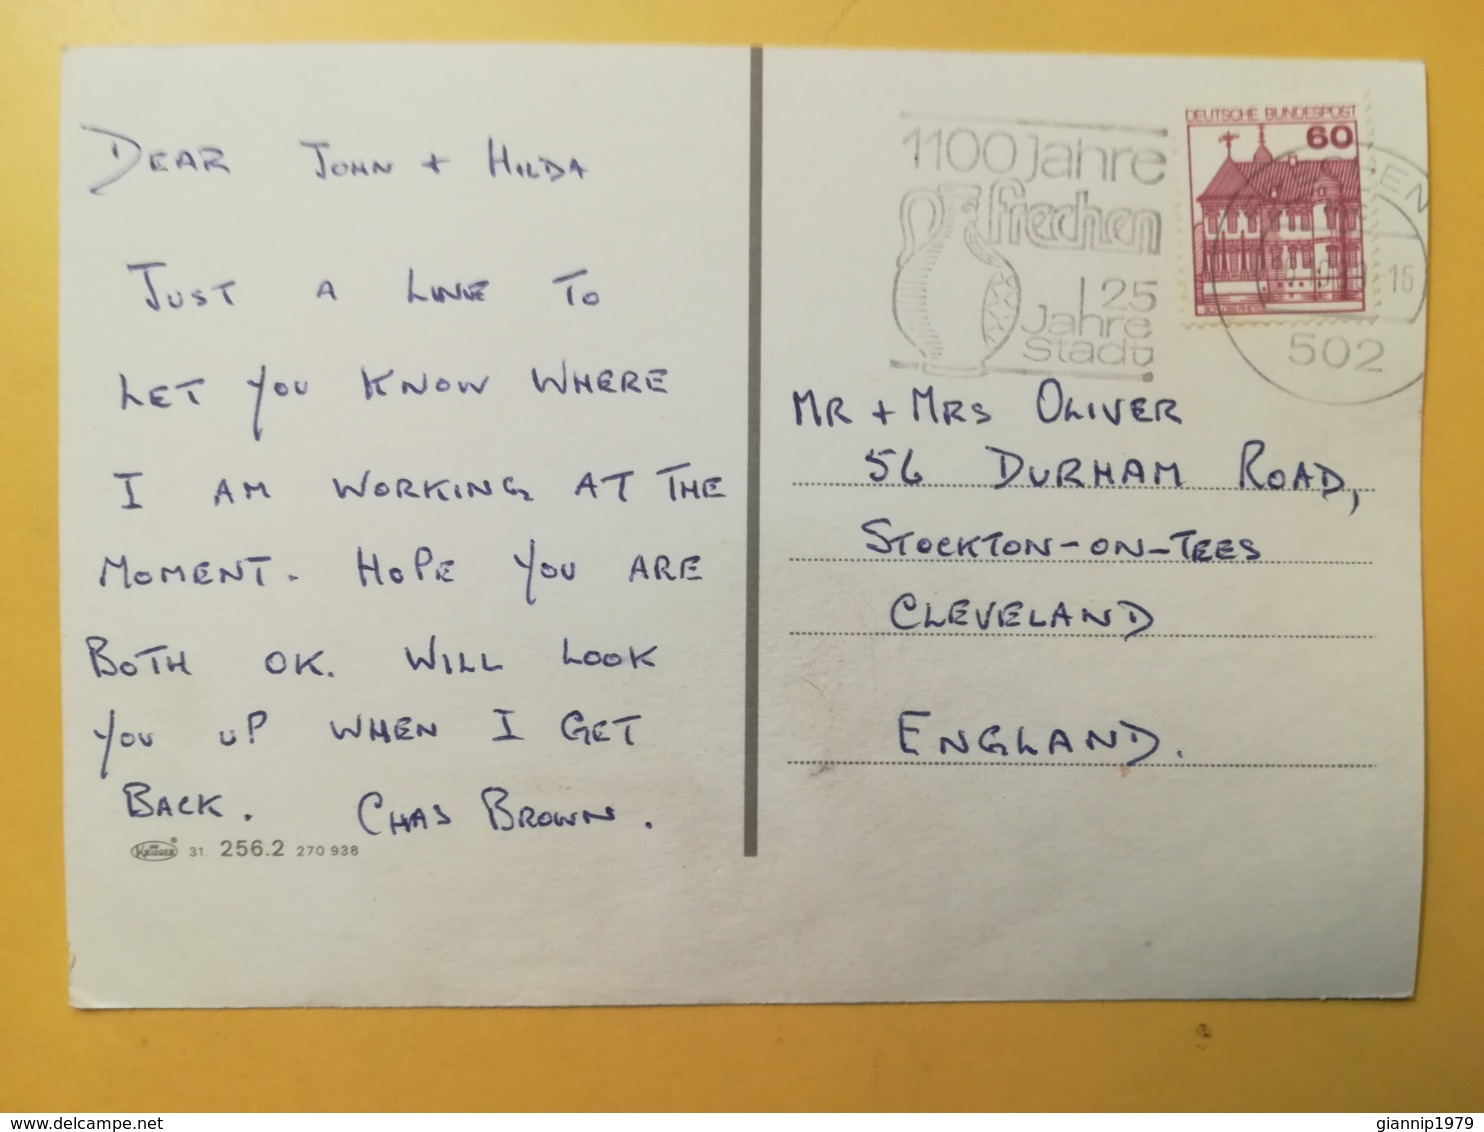 DEAR JOHN + HILDA
JUST A LINE TO
LET YOU KNOW WHERE
I AM WORKING AT THE
MOMENT. HOPE YOU ARE
BOTH OK. WILL LOOK
YOU UP WHEN I GET
BACK. CHAS BROWN.
KRÜGER 31 256.2 270 938
1100 Jahre
frechen
25
Jahre
Stadt
DEUTSCHE BUNDESPOST
60
16
502
MR + MRS OLIVER
56 DURHAM ROAD,
STOCKTON-ON-TEES
CLEVELAND
ENGLAND.
delcampe.net
giannip1979